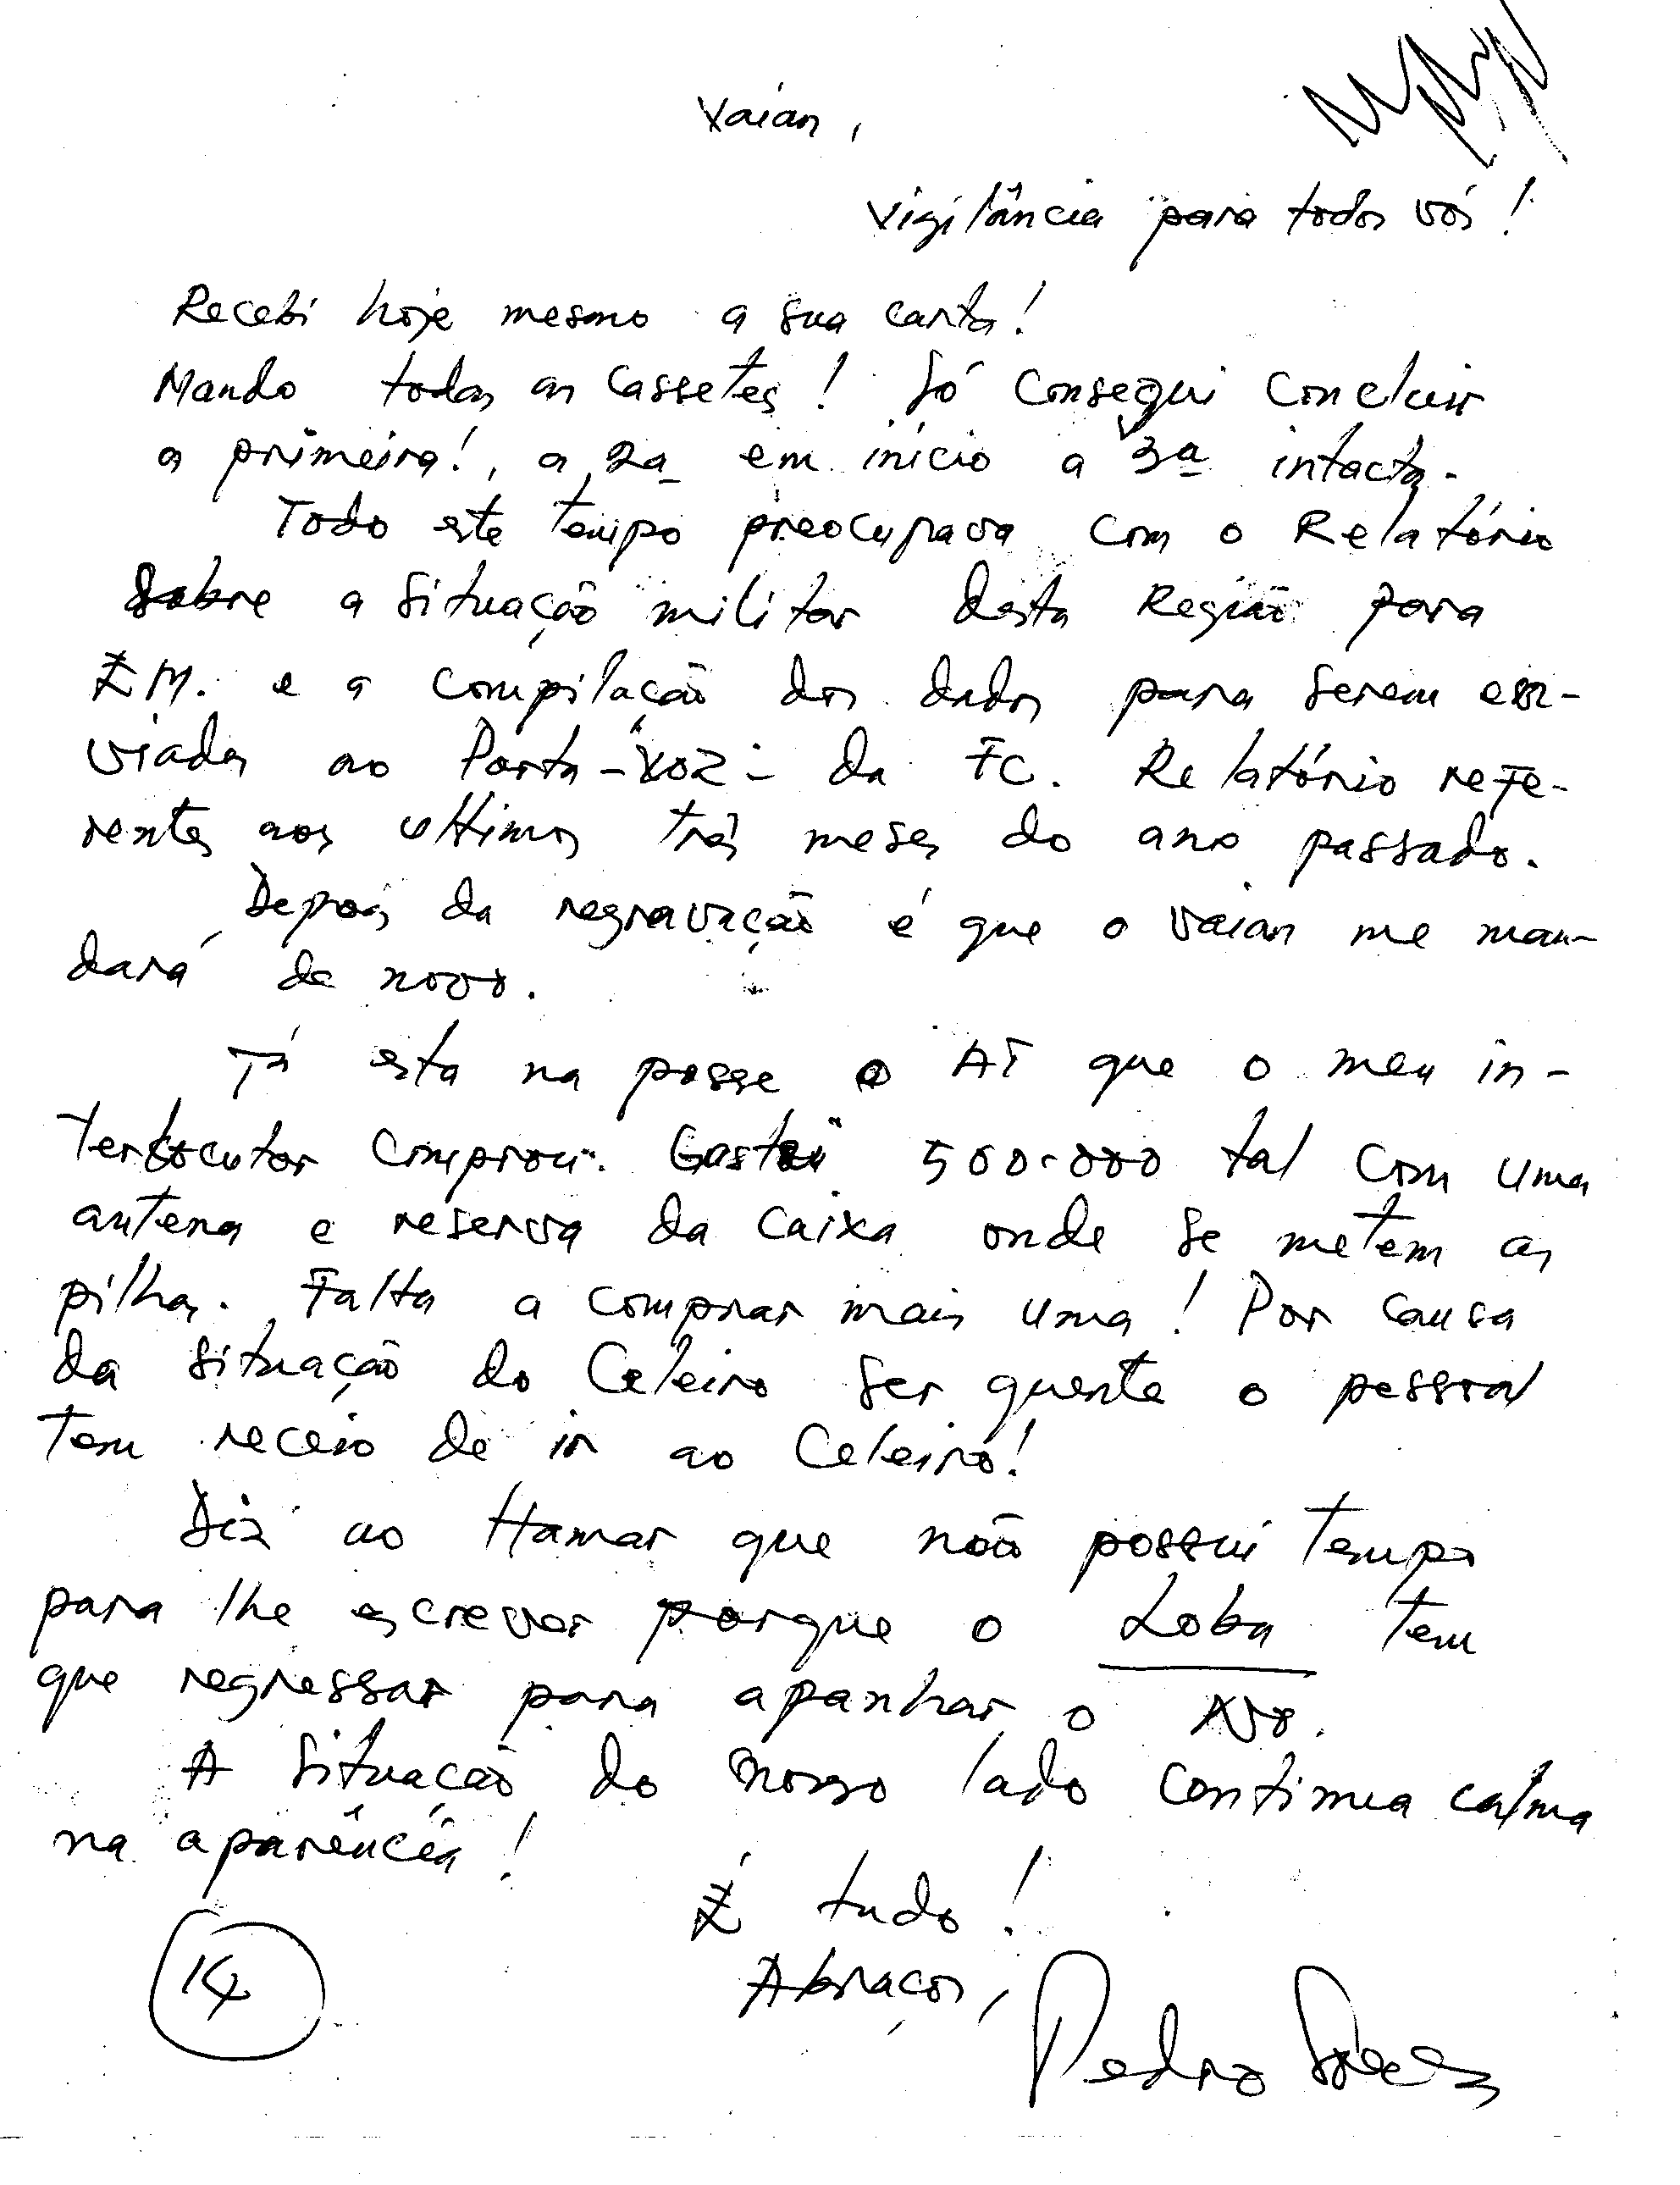 Vaian,
Vigilância para todos vós!
Recebi hoje mesmo a sua carta!
Mando todas as cassetes! Só consegui concluir
a primeira!, a 2ª em início a 3ª intacta.
Todo este tempo preocupava com o Relatório
sobre a situação militar desta Região para
E.M. e a compilação dos dados para serem en-
viados ao Porta-Voz - da FC. Relatório refe-
rentes aos ultimos três meses do ano passado.
Depois da regravação é que o Vaian me man-
dará de novo.
Já esta na posse o AT que o meu in-
terlocutor comprou. Gastou 500.000 tal com uma
antena e reserva da caixa onde se metem as
pilhas. Falta a comprar mais uma! Por causa
da situação do Celeiro ser quente o pessoal
tem receio de ir ao Celeiro!
Diz ao Hamar que não possui tempo
para lhe escrever porque o Loba tem
que regressar para apanhar o
A situação do nosso lado continua calma
na aparência!
É tudo!
Abraços,
14
Pedro